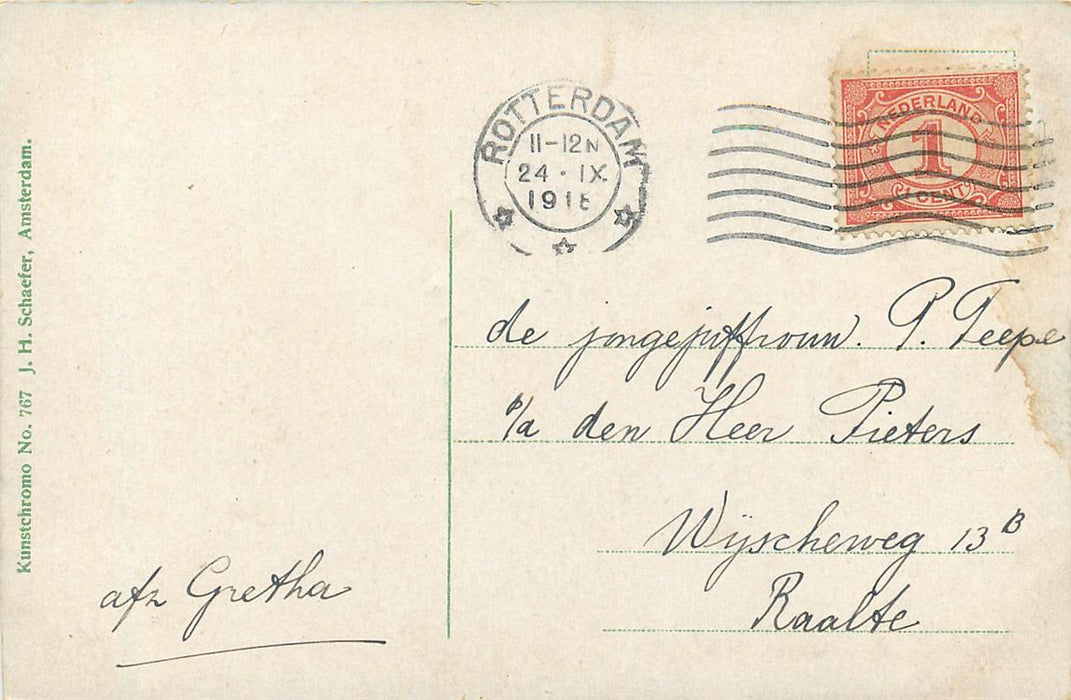 Kunstchromo No. 767 J. H. Schaefer, Amsterdam.
ROTTERDAM
11-12N
24 · IX
191
NEDERLAND
1
1 CENT
de jongejuffrouw. P. Teepe
p/a den Heer Pieters
Wijscheweg 13B
Raalte
afz Gretha